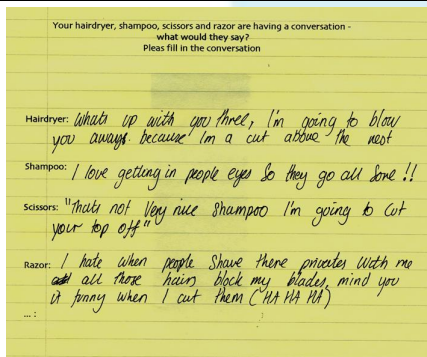 Your hairdryer, shampoo, scissors and razor are having a conversation -
what would they say?
Pleas fill in the conversation
Hairdryer: Whats up with you three, I'm going to blow
you aways. because Im a cut above the rest
Shampoo: I love getting in people eyes So they go all Sore !!
Scissors: "Thats not Very nice Shampoo I'm going to Cut
your top off"
Razor: I hate when people Shave there privates with me
all those hairs block my blades, mind you
it funny when I cut them (HA HA HA)
... :